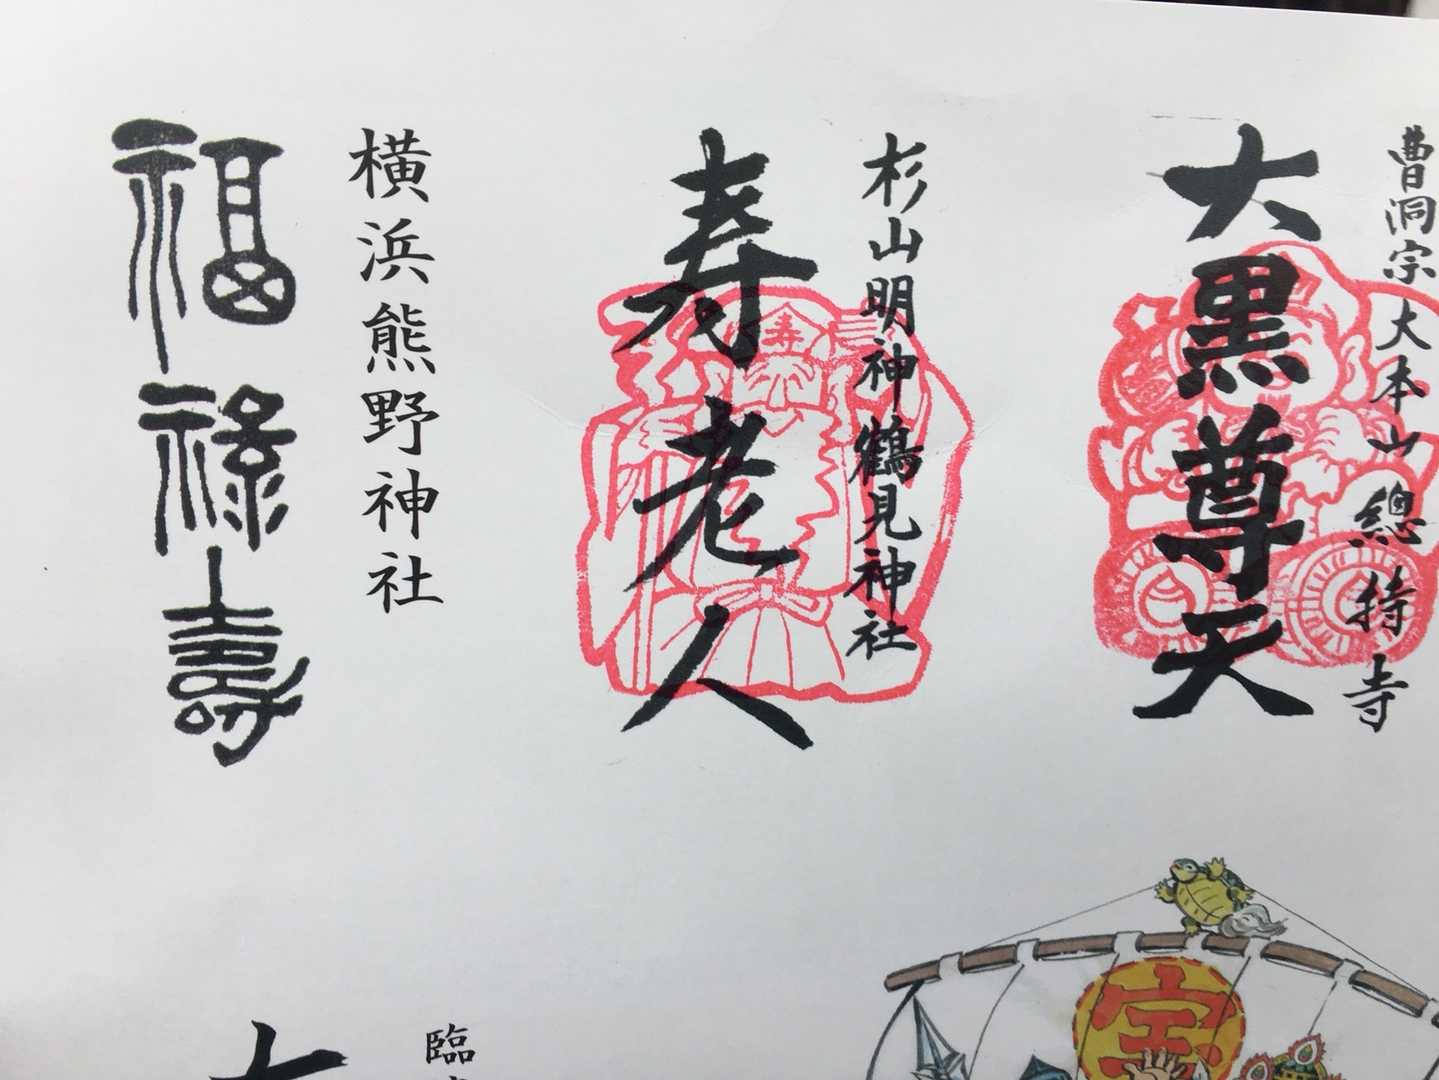 曹洞宗大本山總持寺
大黒尊天
杉山明神鶴見神社
寿老人
寿
横浜熊野神社
福禄壽
臨
宝